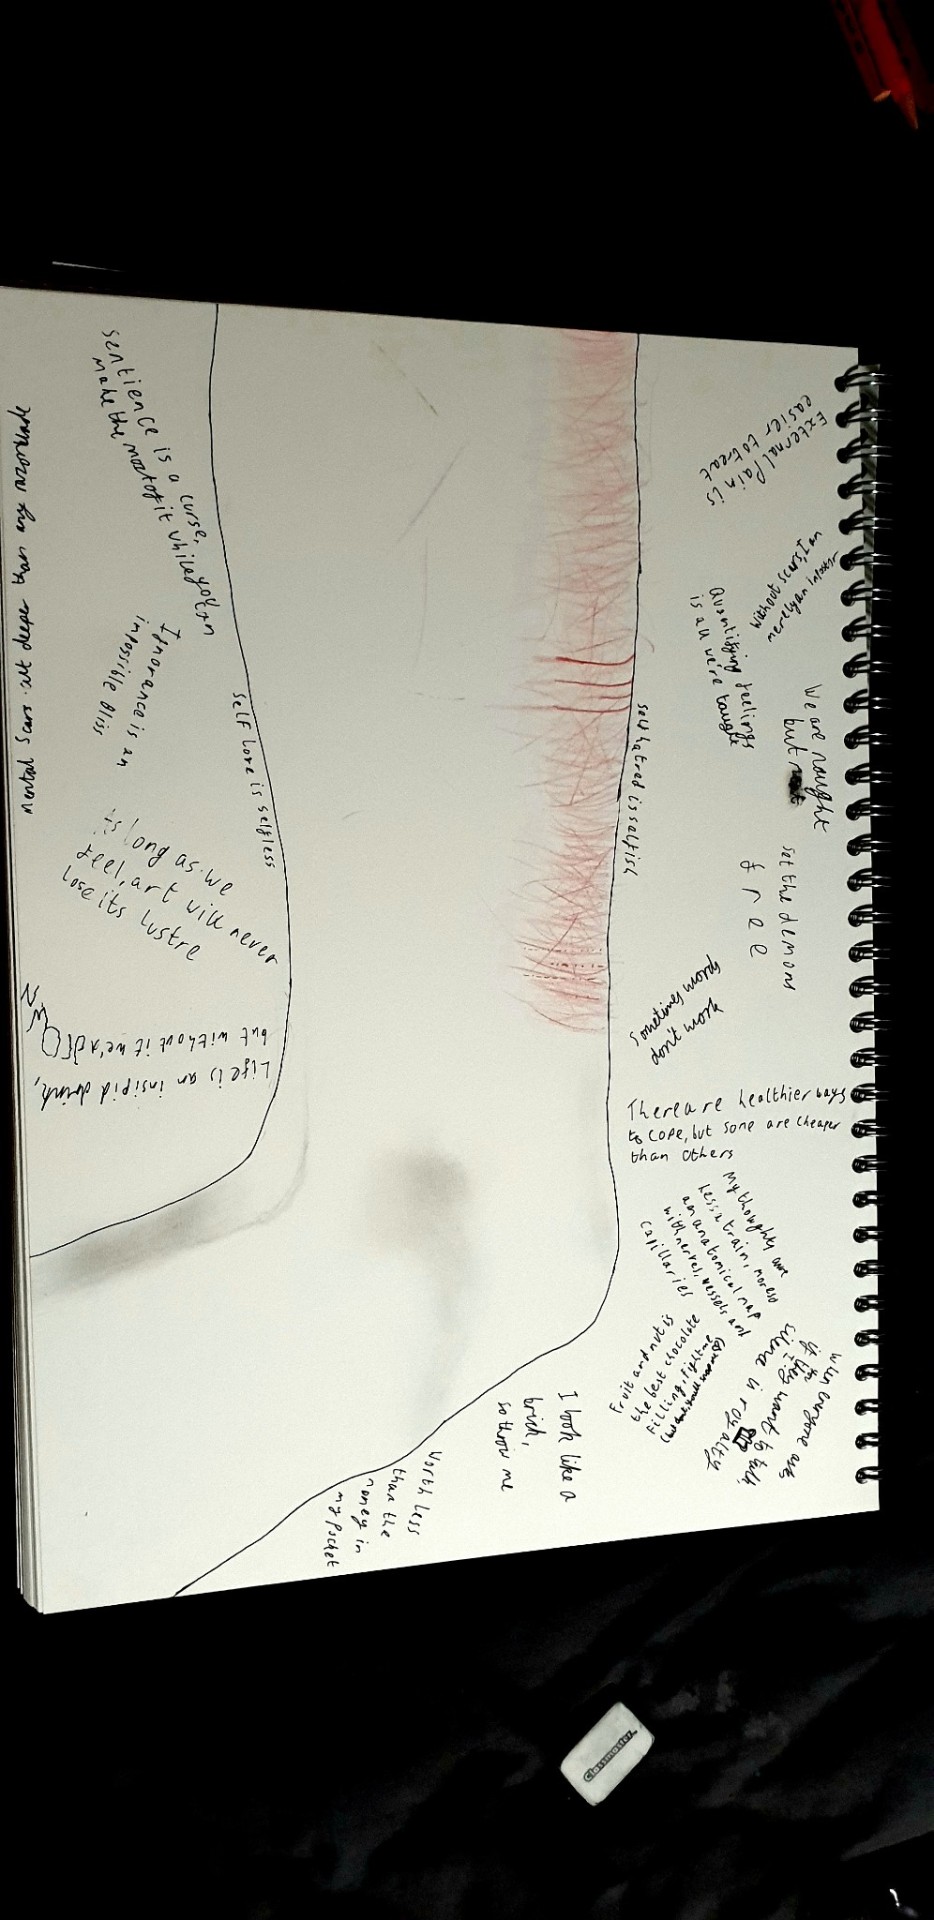 External Pain is
easier to treat
without scars, I am
merely an
Quantifying feelings
is all we're taught
We are nought
but
set the demons
free
self hatred is selfish
Sometimes words
don't work
There are healthier ways
to cope, but some are cheaper
than others
My thoughts are
less a train, moreso
an anatomical map
with nerves, vessels and
capillaries
when everyone
they want to talk,
silence is royalty
Fruit and nut is
the best chocolate
filling, fight me
I look like a
brick,
so throw me
Worth less
than the
money in
my pocket
sentience is a curse,
make the most of it while you can
Ignorance is an
impossible Bliss
self love is selfless
as long as we
feel, art will never
lose its lustre
Life is an insipid drink,
but without it we'd
mental scars cut deeper than any razorblade
Classmaster